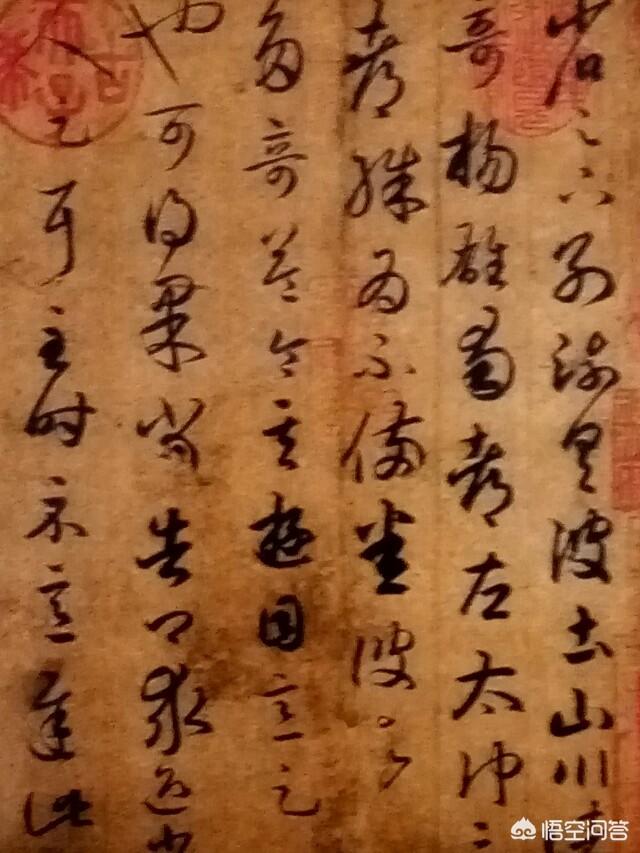 省足下別疏具彼土山川諸
奇楊雄蜀都左太沖三
都殊為不備悉彼故
多奇益令其遊目意足
也可得果當告卿求迎少
人足耳至時示意遲此
悟空问答